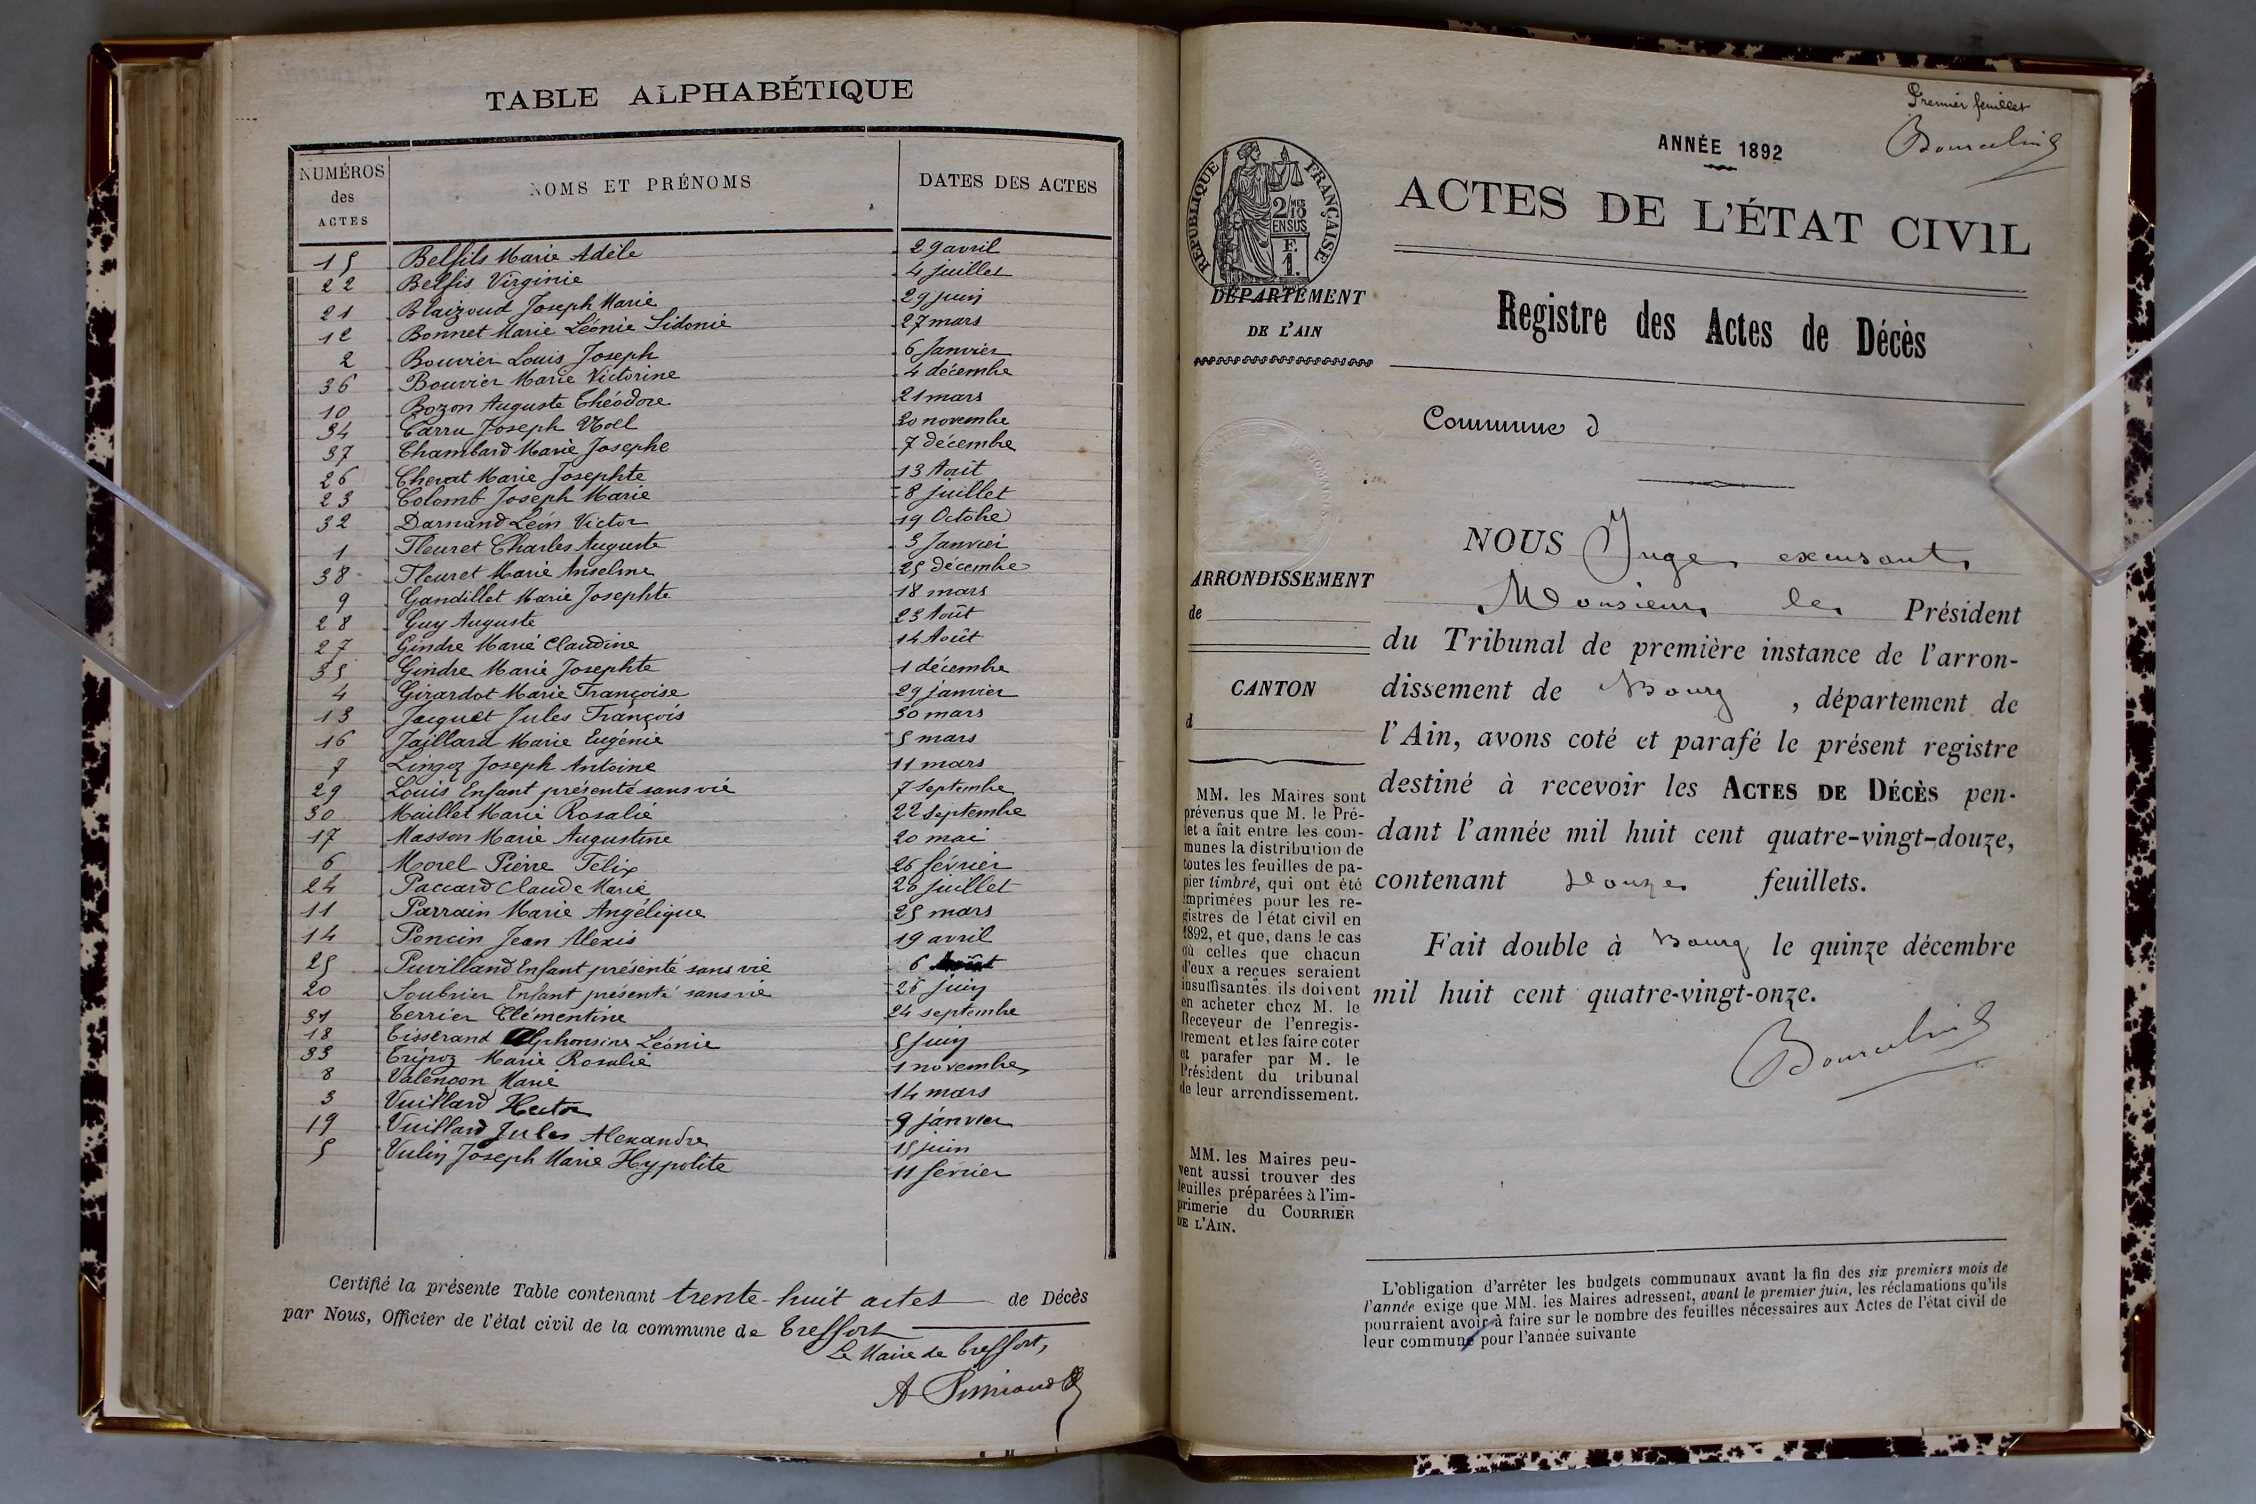 TABLE ALPHABÉTIQUE
NUMÉROS des ACTES NOMS ET PRÉNOMS DATES DES ACTES
15 Belfils Marie Adèle 29 avril
22 Belfis Virginie 4 juillet
21 Blaizoud Joseph Marie 29 juin
12 Bonnet Marie Léonie Sidonie 27 mars
2 Bouvier Louis Joseph 6 Janvier
36 Bouvier Marie Victorine 4 décembre
10 Bozon Auguste Théodore 21 mars
34 Carru Joseph Noël 20 novembre
37 Chambard Marie Josephe 7 décembre
26 Chevat Marie Josephte 13 Août
23 Colomb Joseph Marie 8 juillet
32 Darnand Léon Victor 19 Octobre
1 Fleuret Charles Auguste 3 Janvier
38 Fleuret Marie Anselme 25 décembre
9 Gandillet Marie Josephte 18 mars
28 Guy Auguste 23 Août
27 Gindre Marie Claudine 14 Août
35 Gindre Marie Josephte 1 décembre
4 Girardot Marie Françoise 29 janvier
13 Jacquet Jules François 30 mars
16 Jaillard Marie Eugénie 5 mars
7 Lingoz Joseph Antoine 11 mars
29 Louis Enfant présenté sans vie 7 Septembre
30 Maillet Marie Rosalie 22 septembre
17 Masson Marie Augustine 20 mai
6 Morel Pierre Félix 26 février
24 Paccard Claude Marie 26 juillet
11 Parrain Marie Angélique 25 mars
14 Poncin Jean Alexis 19 avril
25 Puvilland Enfant présenté sans vie 6 Août
20 Soubrier Enfant présenté sans vie 26 juin
31 Terrier Clémentine 24 septembre
18 Tisserand Alphonsine Léonie 5 juin
33 Tripoz Marie Rosalie 1 novembre
8 Valençon Marie 14 mars
3 Vuillard Hector 9 janvier
19 Vuillard Jules Alexandre 15 juin
5 Vulin Joseph Marie Hypolite 11 février
Certifié la présente Table contenant trente-huit actes de Décès
par Nous, Officier de l'état civil de la commune de Treffort
Le Maire de Treffort,
Premier feuillet
ANNÉE 1892
ACTES DE L'ÉTAT CIVIL
RÉPUBLIQUE FRANÇAISE
2/10 MES
EN SUS
F.
1.
DÉPARTEMENT
DE L'AIN
Registre des Actes de Décès
Commune d
NOUS Juge excusant
Monsieur le Président
du Tribunal de première instance de l'arron-
dissement de Bourg, département de
l'Ain, avons coté et parafé le présent registre
destiné à recevoir les ACTES DE DÉCÈS pen-
dant l'année mil huit cent quatre-vingt-douze,
contenant douze feuillets.
Fait double à Bourg le quinze décembre
mil huit cent quatre-vingt-onze.
ARRONDISSEMENT
de
CANTON
d
MM. les Maires sont
prévenus que M. le Pré-
fet a fait entre les com-
munes la distribution de
toutes les feuilles de pa-
pier timbré, qui ont été
imprimées pour les re-
gistres de l'état civil en
1892, et que, dans le cas
où celles que chacun
d'eux a reçues seraient
insuffisantes ils doivent
en acheter chez M. le
Receveur de l'enregis-
trement et les faire coter
et parafer par M. le
Président du tribunal
de leur arrondissement.
MM. les Maires peu-
vent aussi trouver des
feuilles préparées à l'im-
primerie du COURRIER
DE L'AIN.
L'obligation d'arrêter les budgets communaux avant la fin des six premiers mois de
l'année exige que MM. les Maires adressent, avant le premier juin, les réclamations qu'ils
pourraient avoir à faire sur le nombre des feuilles nécessaires aux Actes de l'état civil de
leur commune pour l'année suivante